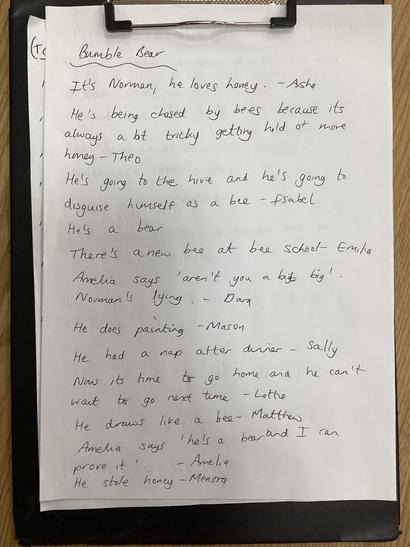 (T
Bumble Bear
It's Norman, he loves honey. - Aisha
He's being chased by bees because its
always a bt tricky getting hold of more
honey - Theo
He's going to the hive and he's going to
disguise humself as a bee - Isabel
He's a bear
There's a new bee at bee school - Emilia
Amelia says 'aren't you a bit big'.
Norman's lying. - Dara
He does painting - Mason
He had a nap after dinner - Sally
Now its time to go home and he can't
wait to go next time - Lottie
He draws like a bee - Matthew
Amelia says 'he's a bear and I can
prove it'. - Amelie
He stole honey - Menora